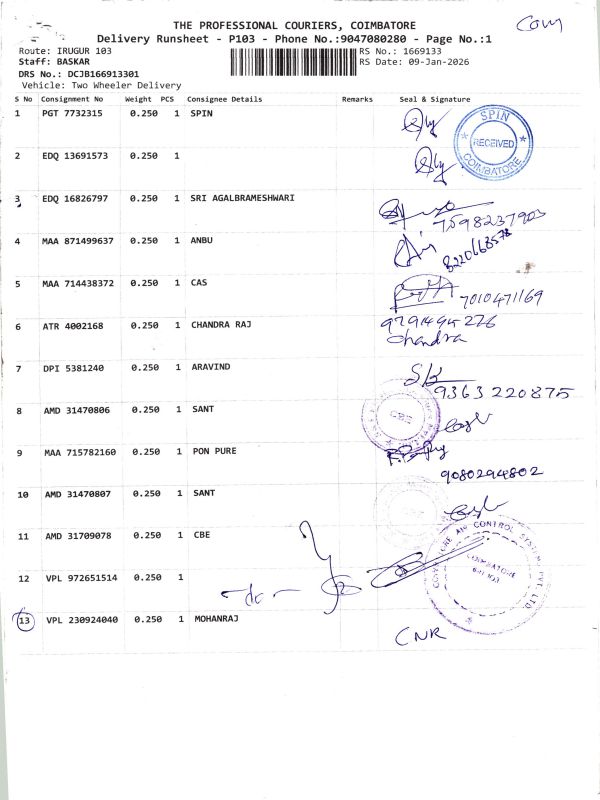 THE PROFESSIONAL COURIERS, COIMBATORE
Delivery Runsheet - P103 - Phone No.:9047080280 - Page No.:1
Route: IRUGUR 103
RS No.: 1669133
Staff: BASKAR
RS Date: 09-Jan-2026
DRS No.: DCJB166913301
Vehicle: Two Wheeler Delivery
S No Consignment No Weight PCS Consignee Details Remarks Seal & Signature
1 PGT 7732315 0.250 1 SPIN
SPIN RECEIVED COIMBATORE
2 EDQ 13691573 0.250 1
3 EDQ 16826797 0.250 1 SRI AGALBRAMESHWARI
7598237903
4 MAA 871499637 0.250 1 ANBU
5 MAA 714438372 0.250 1 CAS
7010471169
6 ATR 4002168 0.250 1 CHANDRA RAJ
9791494276
Chandra
7 DPI 5381240 0.250 1 ARAVIND
9363220875
8 AMD 31470806 0.250 1 SANT
CBE
9 MAA 715782160 0.250 1 PON PURE
9080294802
10 AMD 31470807 0.250 1 SANT
11 AMD 31709078 0.250 1 CBE
AIR CONTROL SYSTEM PVT. LTD.
COIMBATORE
12 VPL 972651514 0.250 1
13 VPL 230924040 0.250 1 MOHANRAJ
CNR